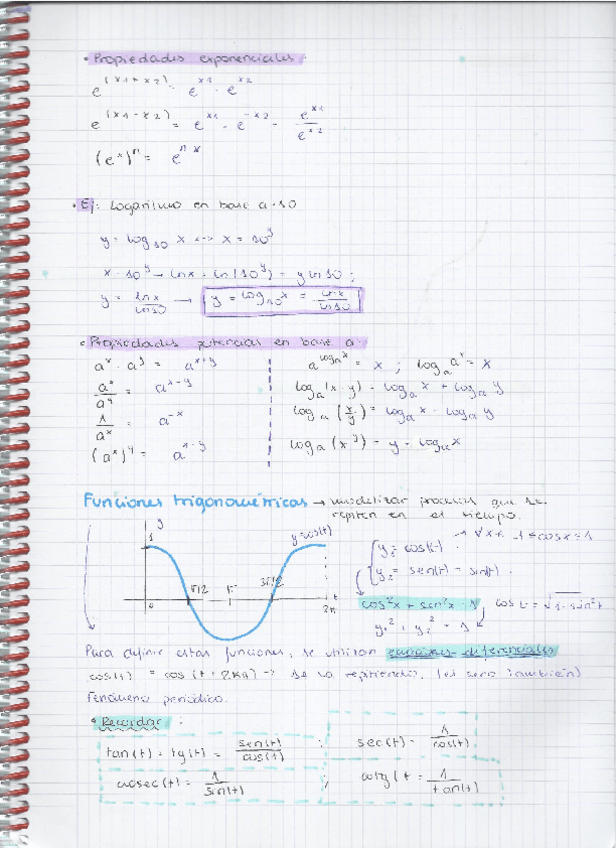 • Propiedades exponenciales:
e^(x1+x2) = e^x1 · e^x2
e^(x1-x2) = e^x1 · e^-x2 = e^x1/e^x2
(e^x)^n = e^n·x
• Ej: Logaritmo en base a=10
y = log10 x <-> x = 10^y
x = 10^y → ln x = ln(10^y) = y ln 10 ;
y = ln x/ln 10 → y = log10 x = ln x/ln 10
• Propiedades potencias en base a:
a^x · a^y = a^x+y
a^x/a^y = a^x-y
1/a^x = a^-x
(a^x)^y = a^x·y
a^loga x = x ; loga a^x = x
loga (x·y) = loga x + loga y
loga (x/y) = loga x - loga y
loga (x^y) = y · loga x
Funciones trigonométricas → modelizar procesos que se
repiten en el tiempo.
y
1
y=cos(t)
π/2
π
3π/2
t
0
2π
y1= cos(t) · → ∀x -1≤cosx≤1
y2= sen(t) = sin(t) ·
cos²x + sen²x = 1 cos t = √1-sin²t
y1² + y2² = 1
Para definir estas funciones, se utilizan ecuaciones diferenciales
cos(t) = cos (t+2kπ) → se va repitiendo. (el seno también)
Fenómeno periódico.
• Recordar:
tan(t) = tg(t) = sen(t)/cos(t) ;
sec(t) = 1/cos(t)
cosec(t) = 1/sin(t) ;
cotg(t = 1/tan(t)